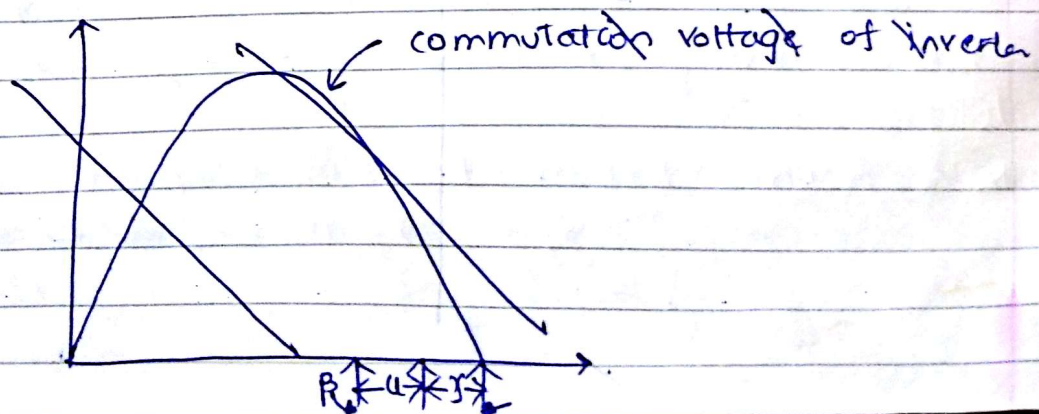 commutation voltage of inverter
β u γ